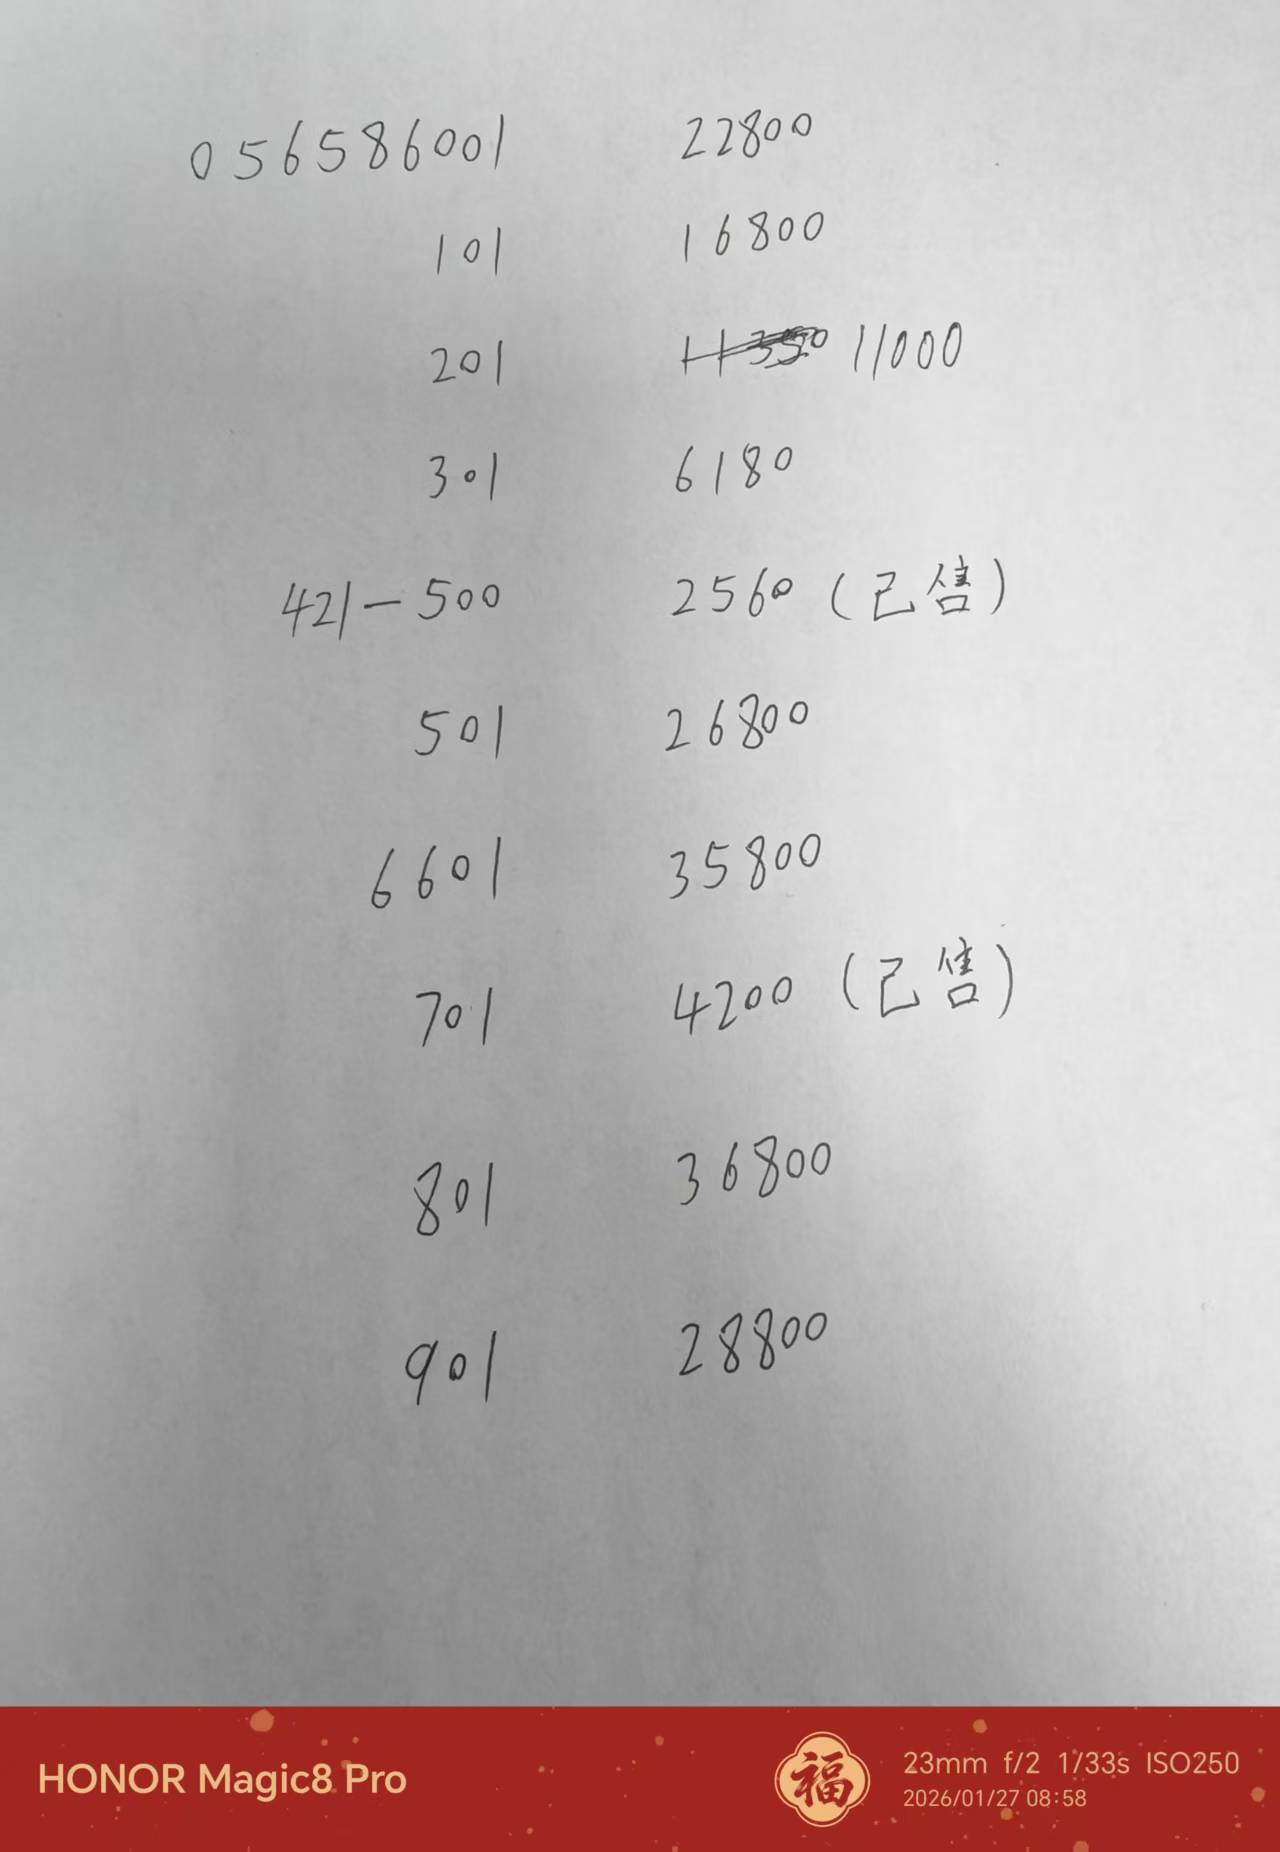 056586001 22800
101 16800
201 11350 11000
301 6180
421-500 2560 (已售)
501 26800
6601 35800
701 4200 (已售)
801 36800
901 28800
HONOR Magic8 Pro
福
23mm f/2 1/33s ISO250
2026/01/27 08:58